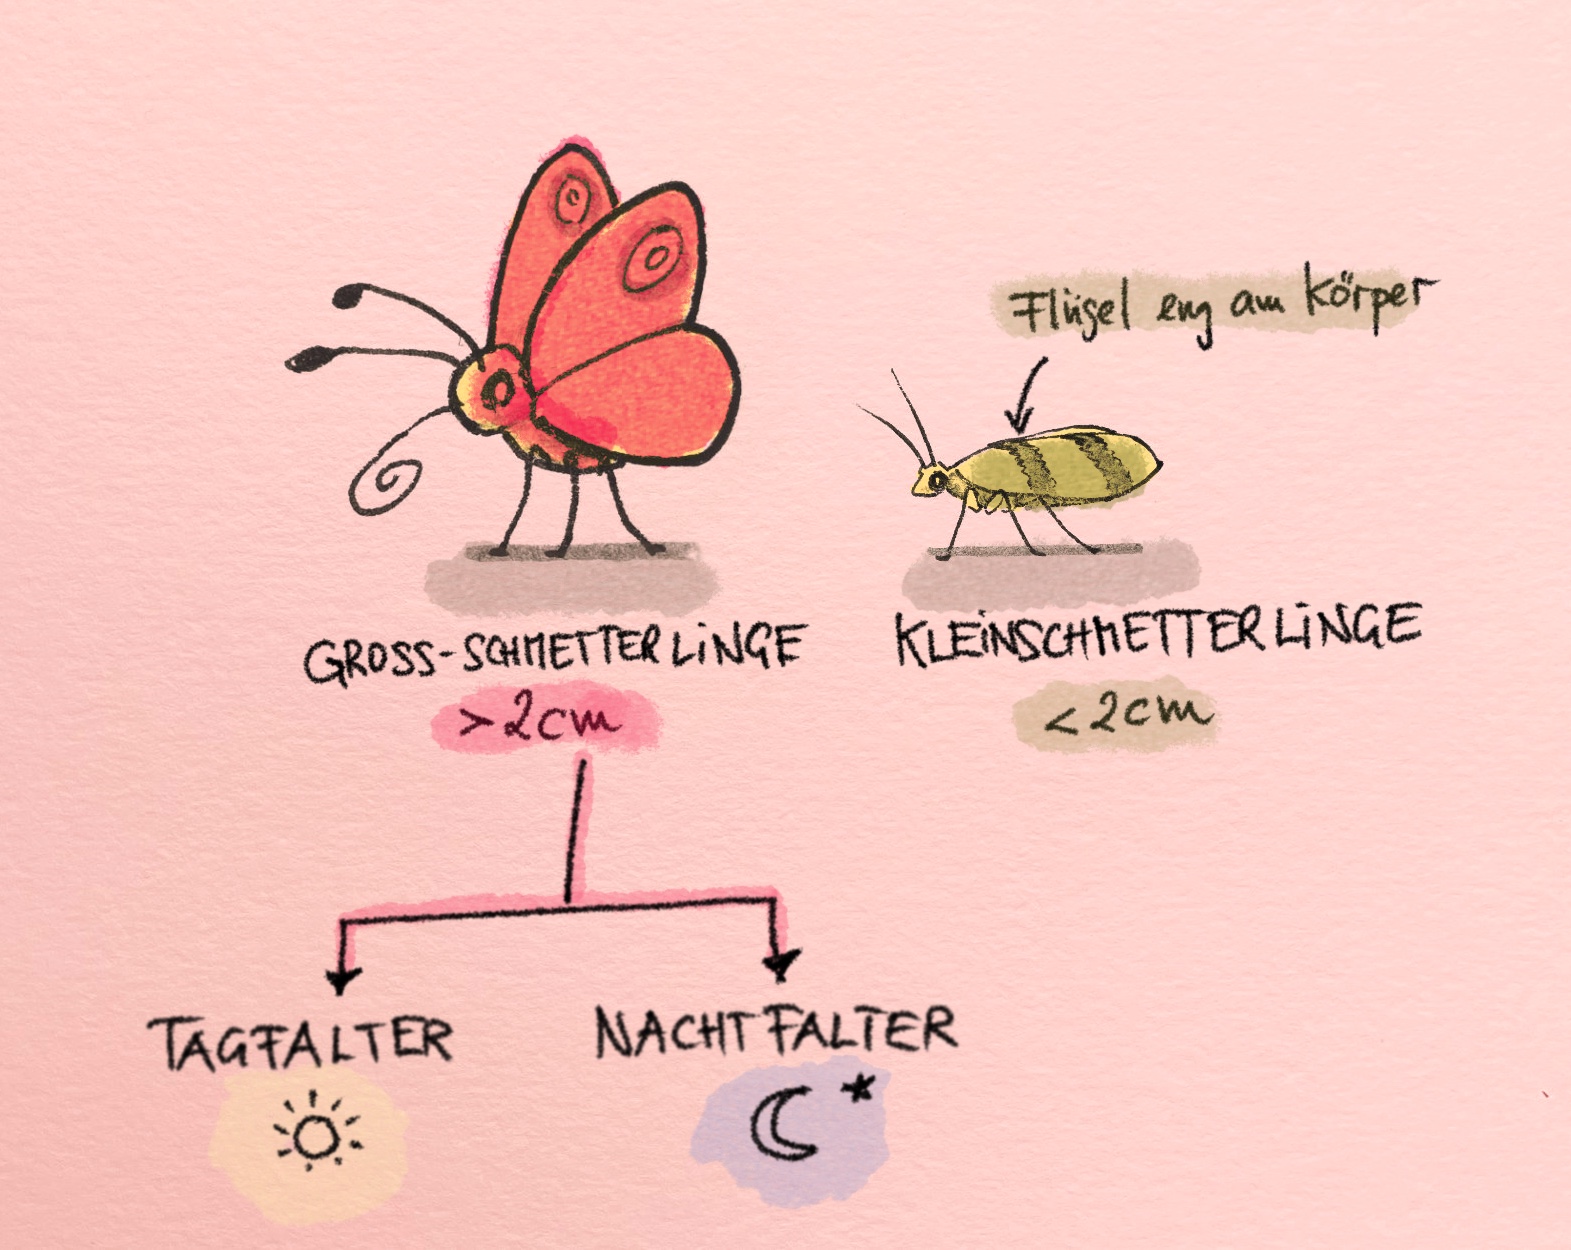 Flügel eng am Körper
GROSS-SCHMETTERLiNGE
KLEiNSCHMETTERLiNGE
> 2cm
< 2cm
TAGFALTER
NACHTFALTER